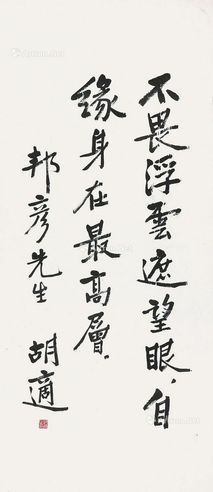 不畏浮雲遮望眼，自
緣身在最高層．
邦彥先生
胡適